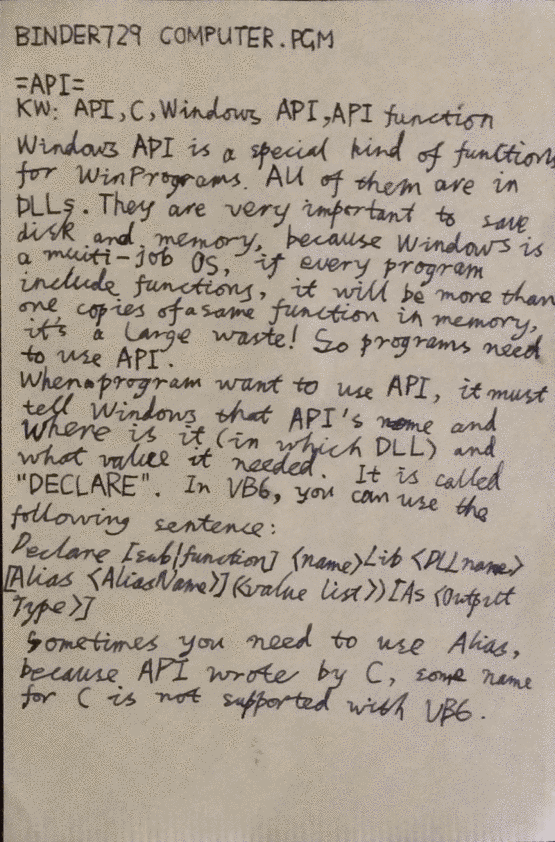 BINDER729 COMPUTER.PGM
=API=
KW: API, C, Windows API, API function
Windows API is a special kind of functions
for WinPrograms. All of them are in
DLLs. They are very important to save
disk and memory, because Windows is
a multi-job OS, if every program
include functions, it will be more than
one copies of a same function in memory,
it's a large waste! So programs need
to use API.
When a program want to use API, it must
tell Windows that API's name and
Where is it (in which DLL) and
what value it needed. It is called
"DECLARE". In VB6, you can use the
following sentence:
Declare [sub|function] <name> Lib <DLLname>
[Alias <AliasName>] (<value list>) [As <Output
Type>]
Sometimes you need to use Alias,
because API wrote by C, some name
for C is not supported with VB6.